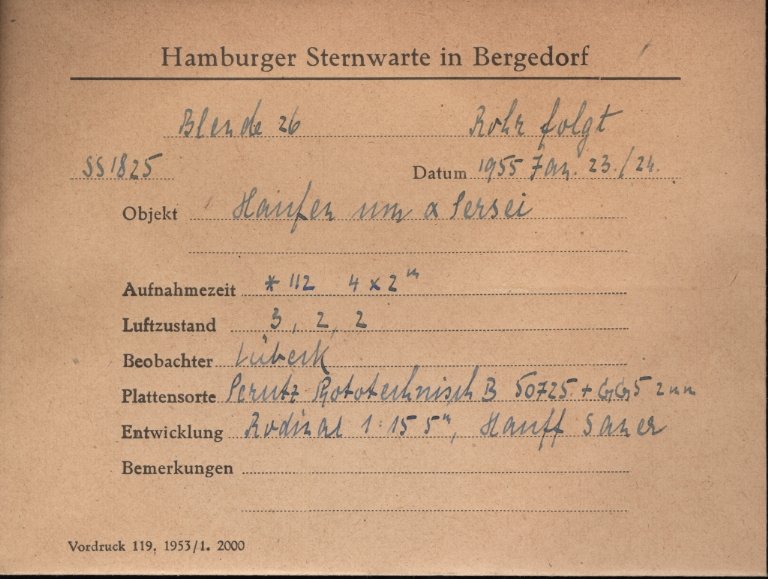 Hamburger Sternwarte in Bergedorf
Blende 26 Rohr folgt
SS1825 Datum 1955 Jan. 23./24.
Objekt Haufen um α Persei
Aufnahmezeit * 112 4 x 2ᵐ
Luftzustand 3, 2, 2
Beobachter Lübeck
Plattensorte Perutz Phototechnisch B 50725 + GG5 2mm
Entwicklung Rodinal 1:15 5ᵐ, Hauff sauer
Bemerkungen
Vordruck 119, 1953/1. 2000